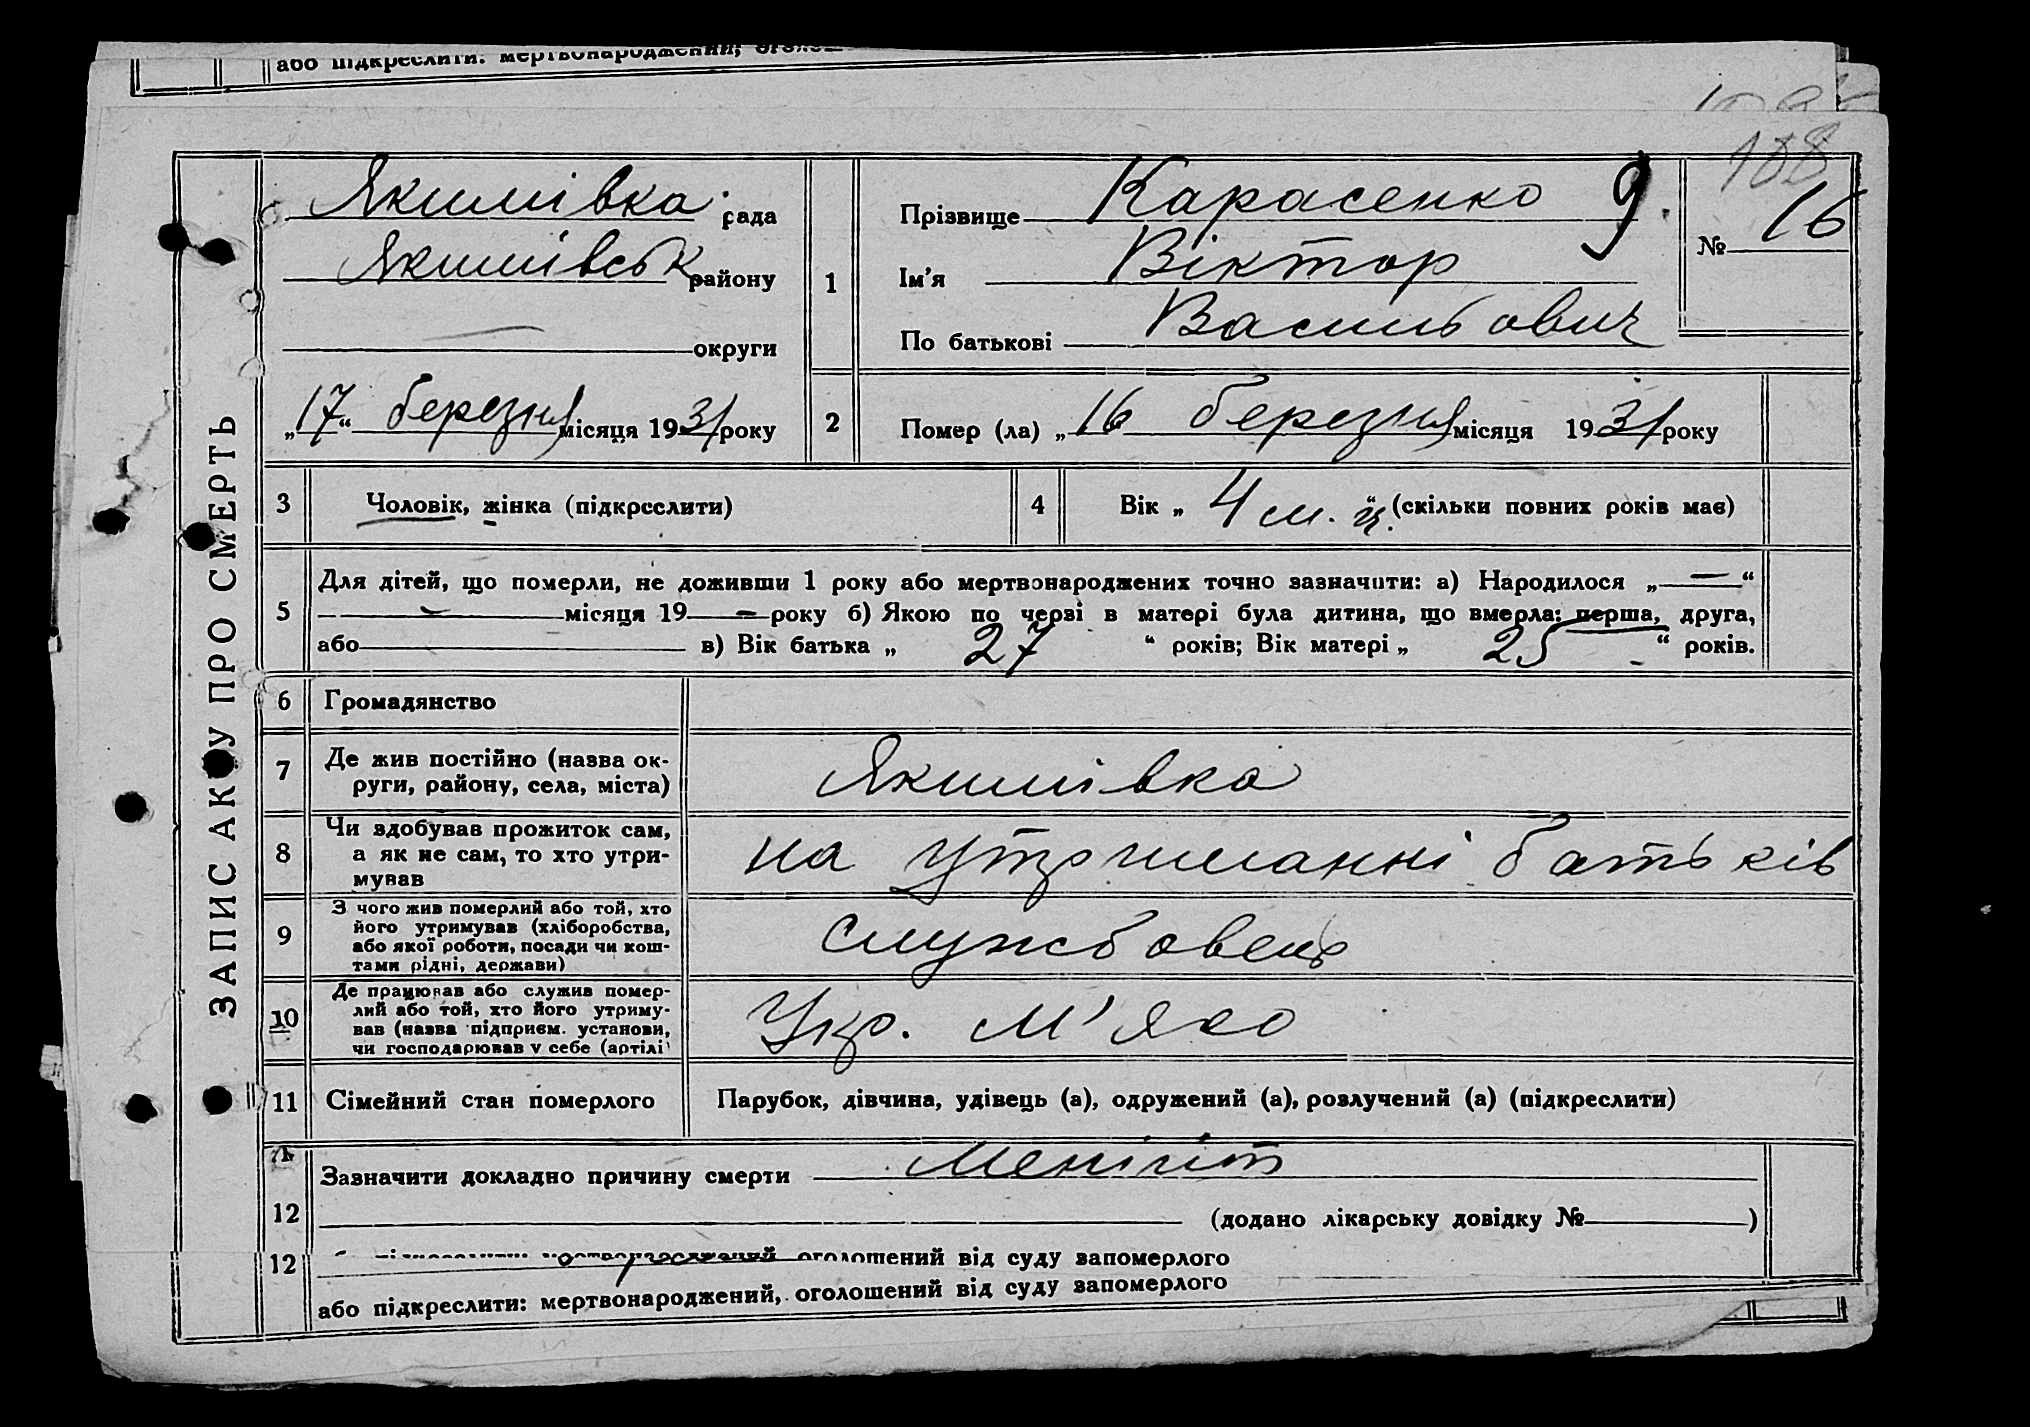 або підкреслити: мертвонароджений,
108
ЗАПИС АКТУ ПРО СМЕРТЬ
Якимівка рада
Якимівськ району
округи
„17“ березня місяця 1931 року
1
Прізвище Карасенко 9.
Ім'я Віктор
По батькові Васильович
№ 16
2
Помер (ла) „16 березня місяця 1931 року
3
Чоловік, жінка (підкреслити)
4
Вік „ 4 м. “ (скільки повних років має)
5
Для дітей, що померли, не доживши 1 року або мертвонароджених точно зазначити: а) Народилося „—“
— місяця 19 — року б) Якою по черзі в матері була дитина, що вмерла: перша, друга,
або в) Вік батька „ 27 “ років; Вік матері „ 25 “ років.
6
Громадянство
7
Де жив постійно (назва ок-
руги, району, села, міста)
Якимівка
8
Чи здобував прожиток сам,
а як не сам, то хто утри-
мував
на утриманні батьків
9
З чого жив померлий або той, хто
його утримував (хліборобства,
або якої роботи, посади чи кош-
тами рідні, держави)
службовець
10
Де працював або служив помер-
лий або той, хто його утриму-
вав (назва підприєм. установи,
чи господарював у себе (артілі
Укр. М'ясо
11
Сімейний стан померлого
Парубок, дівчина, удівець (а), одружений (а), розлучений (а) (підкреслити)
Зазначити докладно причину смерти Менінгіт
12
(додано лікарську довідку № )
12
оголошений від суду запомерлого
або підкреслити: мертвонароджений, оголошений від суду запомерлого